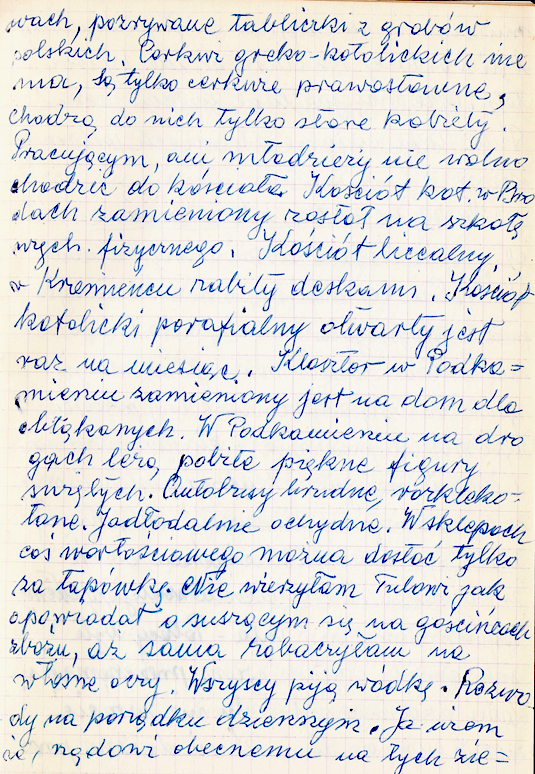 wach, pozrywane tabliczki z grobów
polskich. Cerkwi greko-katolickich nie
ma, są tylko cerkwie prawosławne,
chodzą do nich tylko stare kobiety.
Pracującym, ani młodzieży nie wolno
chodzić do kościoła. Kościół kat. w Bro
dach zamieniony został na szkołę
wych. fizycznego. Kościół licealny
w Krzemieńcu zabity deskami. Kościół
katolicki parafialny otwarty jest
raz na miesiąc. Klasztor w Podka=
mieniu zamieniony jest na dom dla
obłąkanych. W Podkamieniu na dro
gach leżą pobite piękne figury
świętych. Autobusy brudne, rozkleko-
tane. Jadłodalnie ochydne. W sklepach
coś wartościowego można dostać tylko
za łapówkę. Nie wierzyłam Tulowi jak
opowiadał o suszącym się na gościńcach
zbożu, aż sama zobaczyłam na
własne oczy. Wszyscy piją wódkę. Rozwo
dy na porządku dziennym. Ja wiem
że, rządowi obecnemu na tych zie=